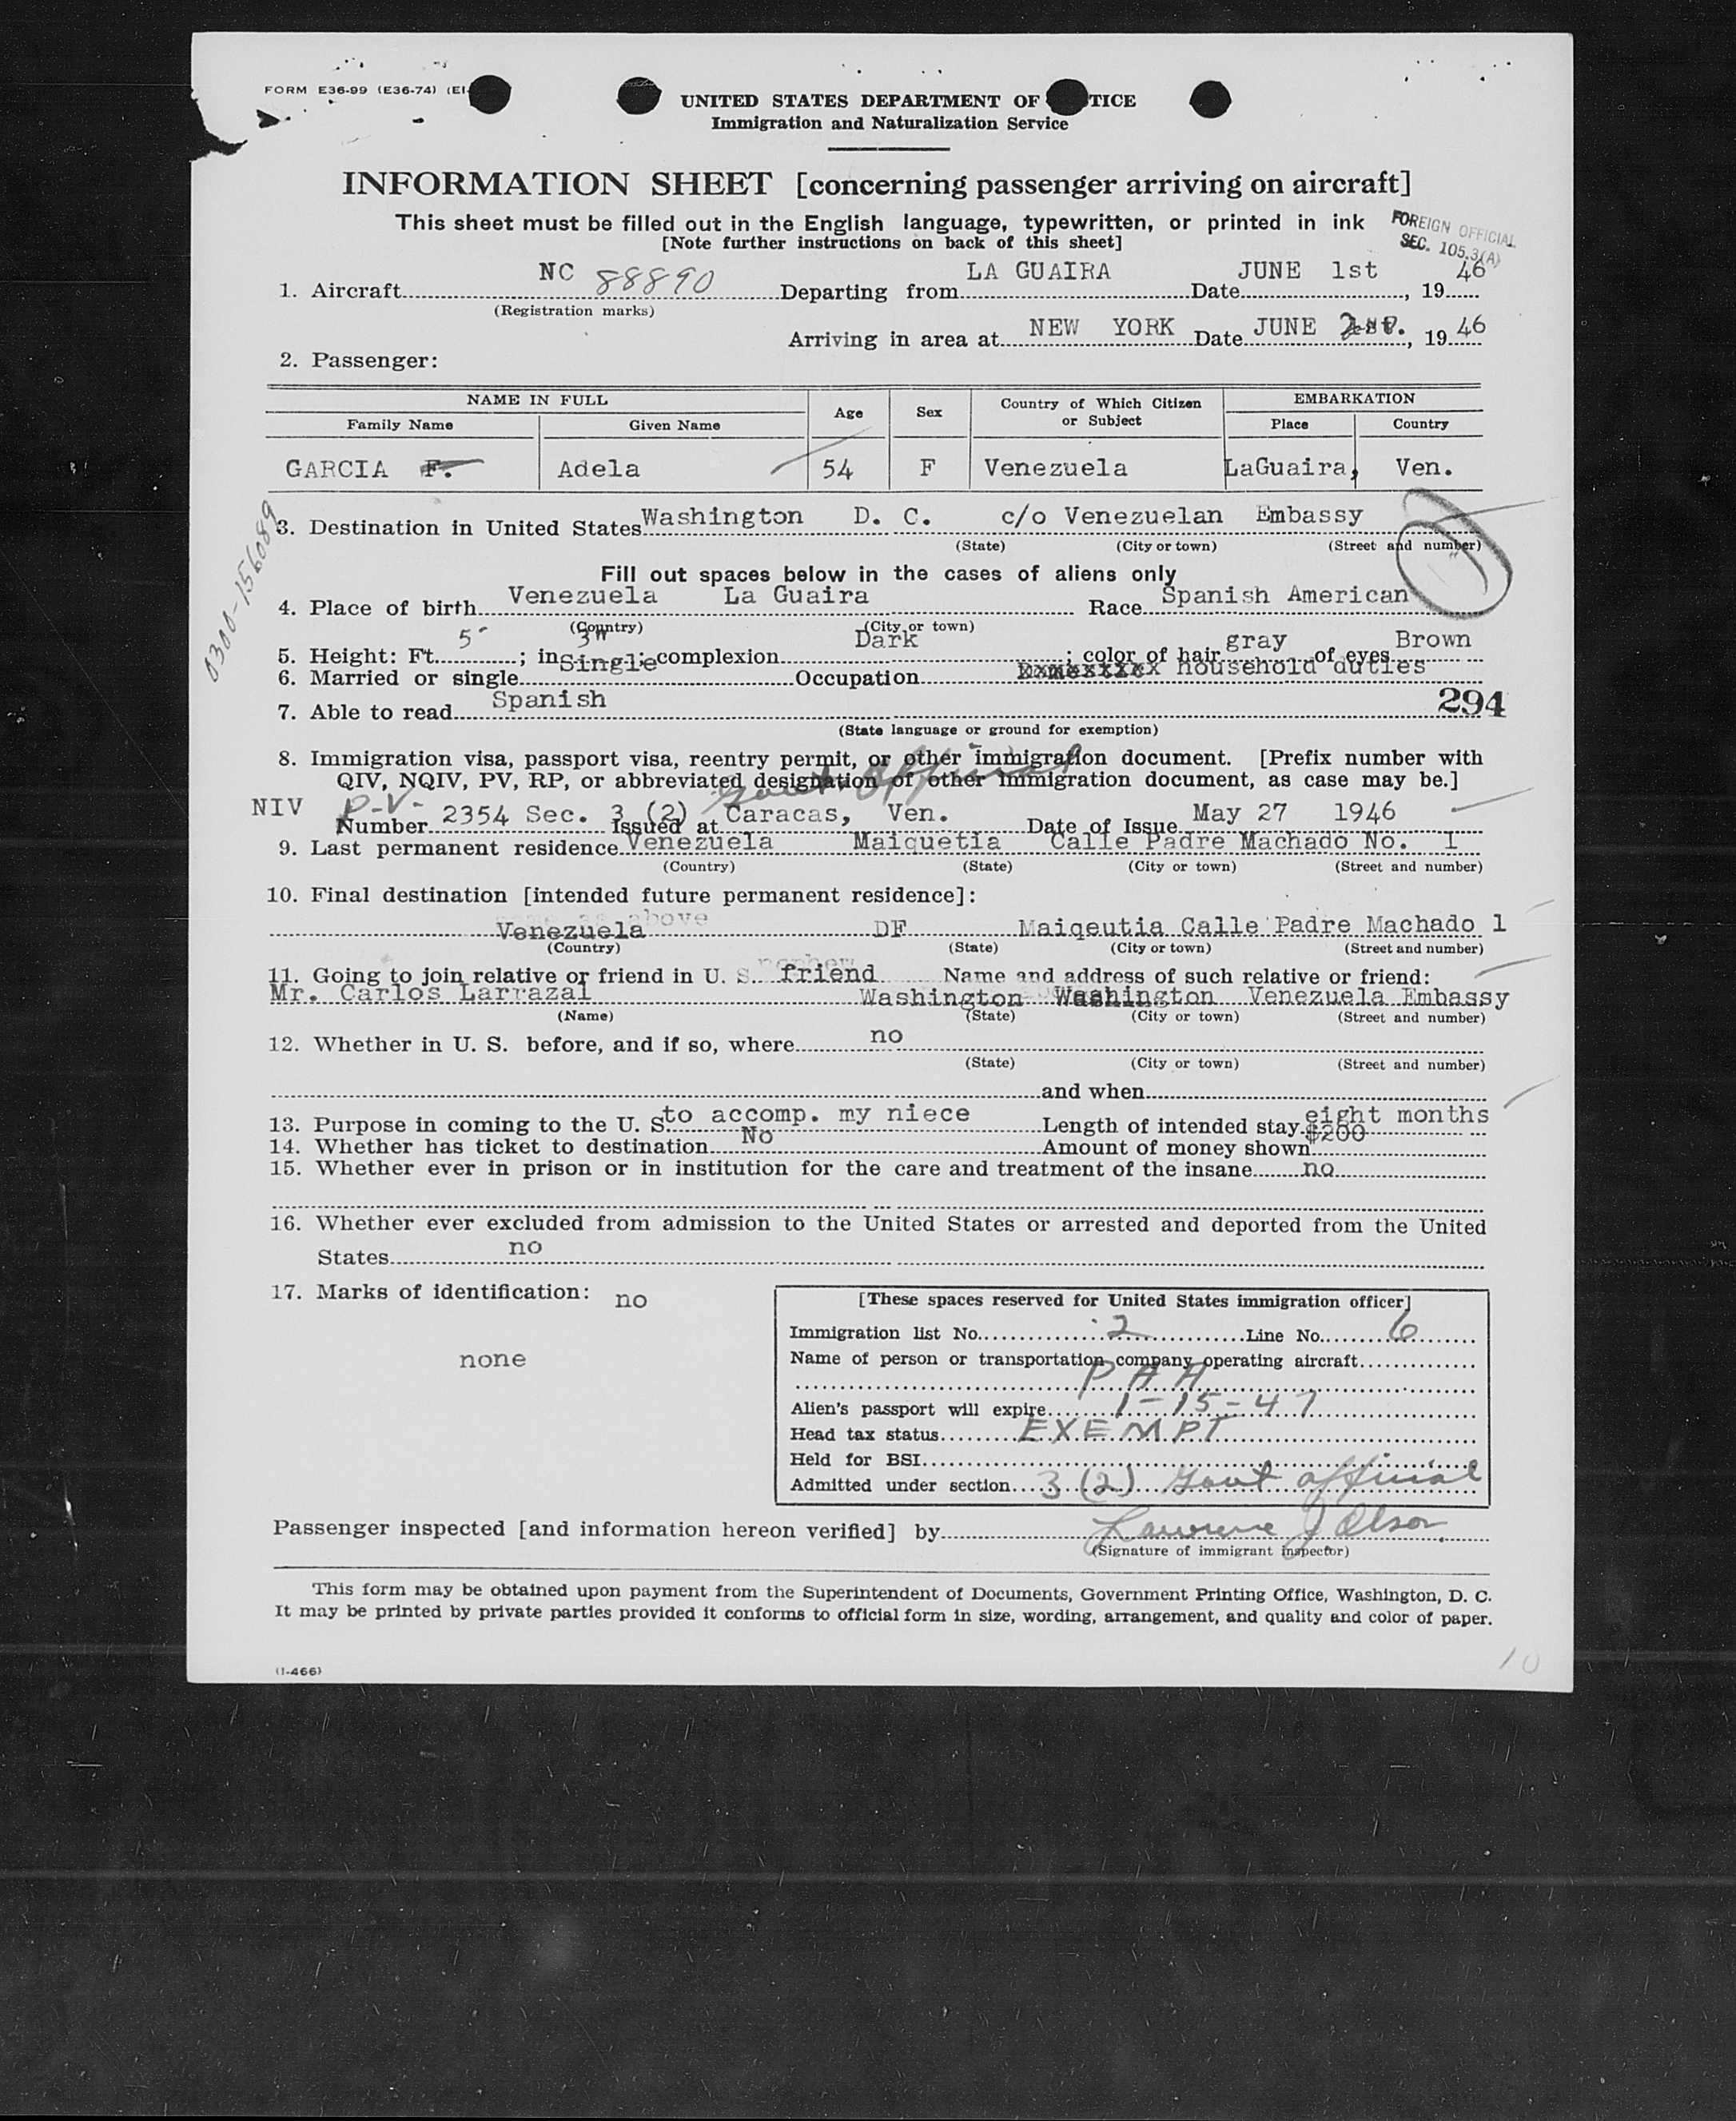 FORM E36-99 (E36-74) (EI-
UNITED STATES DEPARTMENT OF TICE
Immigration and Naturalization Service
INFORMATION SHEET [concerning passenger arriving on aircraft]
This sheet must be filled out in the English language, typewritten, or printed in ink
[Note further instructions on back of this sheet]
FOREIGN OFFICIAL
SEC. 105.3(A)
1. Aircraft NC 88890 Departing from LA GUAIRA Date JUNE 1st, 1946
(Registration marks)
Arriving in area at NEW YORK Date JUNE , 1946
2. Passenger:
NAME IN FULL Age Sex Country of Which Citizen or Subject EMBARKATION
Family Name Given Name Place Country
GARCIA F. Adela 54 F Venezuela LaGuaira, Ven.
0300-156089
3. Destination in United States Washington D. C. c/o Venezuelan Embassy
(State) (City or town) (Street and number)
Fill out spaces below in the cases of aliens only
4. Place of birth Venezuela La Guaira Race Spanish American
(Country) (City or town)
5. Height: Ft. 5 ; in. 3" ; complexion Dark ; color of hair gray of eyes Brown
6. Married or single Single Occupation household duties
7. Able to read Spanish 294
(State language or ground for exemption)
8. Immigration visa, passport visa, reentry permit, or other immigration document. [Prefix number with
QIV, NQIV, PV, RP, or abbreviated designation of other immigration document, as case may be.]
Govt. Official
NIV P-V- Number 2354 Sec. 3 (2) Issued at Caracas, Ven. Date of Issue May 27 1946
9. Last permanent residence Venezuela Maiquetia Calle Padre Machado No. 1
(Country) (State) (City or town) (Street and number)
10. Final destination [intended future permanent residence]:
same as above
Venezuela DF Maiqeutia Calle Padre Machado 1
(Country) (State) (City or town) (Street and number)
11. Going to join relative or friend in U. S. friend Name and address of such relative or friend:
Mr. Carlos Larrazal Washington Washington Venezuela Embassy
(Name) (State) (City or town) (Street and number)
12. Whether in U. S. before, and if so, where no
(State) (City or town) (Street and number)
and when
13. Purpose in coming to the U. S. to accomp. my niece Length of intended stay eight months
14. Whether has ticket to destination No Amount of money shown $200
15. Whether ever in prison or in institution for the care and treatment of the insane no
16. Whether ever excluded from admission to the United States or arrested and deported from the United
States no
17. Marks of identification: no
none
[These spaces reserved for United States immigration officer]
Immigration list No. 2 Line No. 6
Name of person or transportation company operating aircraft
P A A
Alien's passport will expire 1-15-47
Head tax status EXEMPT
Held for BSI
Admitted under section 3 (2) Govt official
Passenger inspected [and information hereon verified] by Lawrence J Olson
(Signature of immigrant inspector)
This form may be obtained upon payment from the Superintendent of Documents, Government Printing Office, Washington, D. C.
It may be printed by private parties provided it conforms to official form in size, wording, arrangement, and quality and color of paper.
10
(I-466)